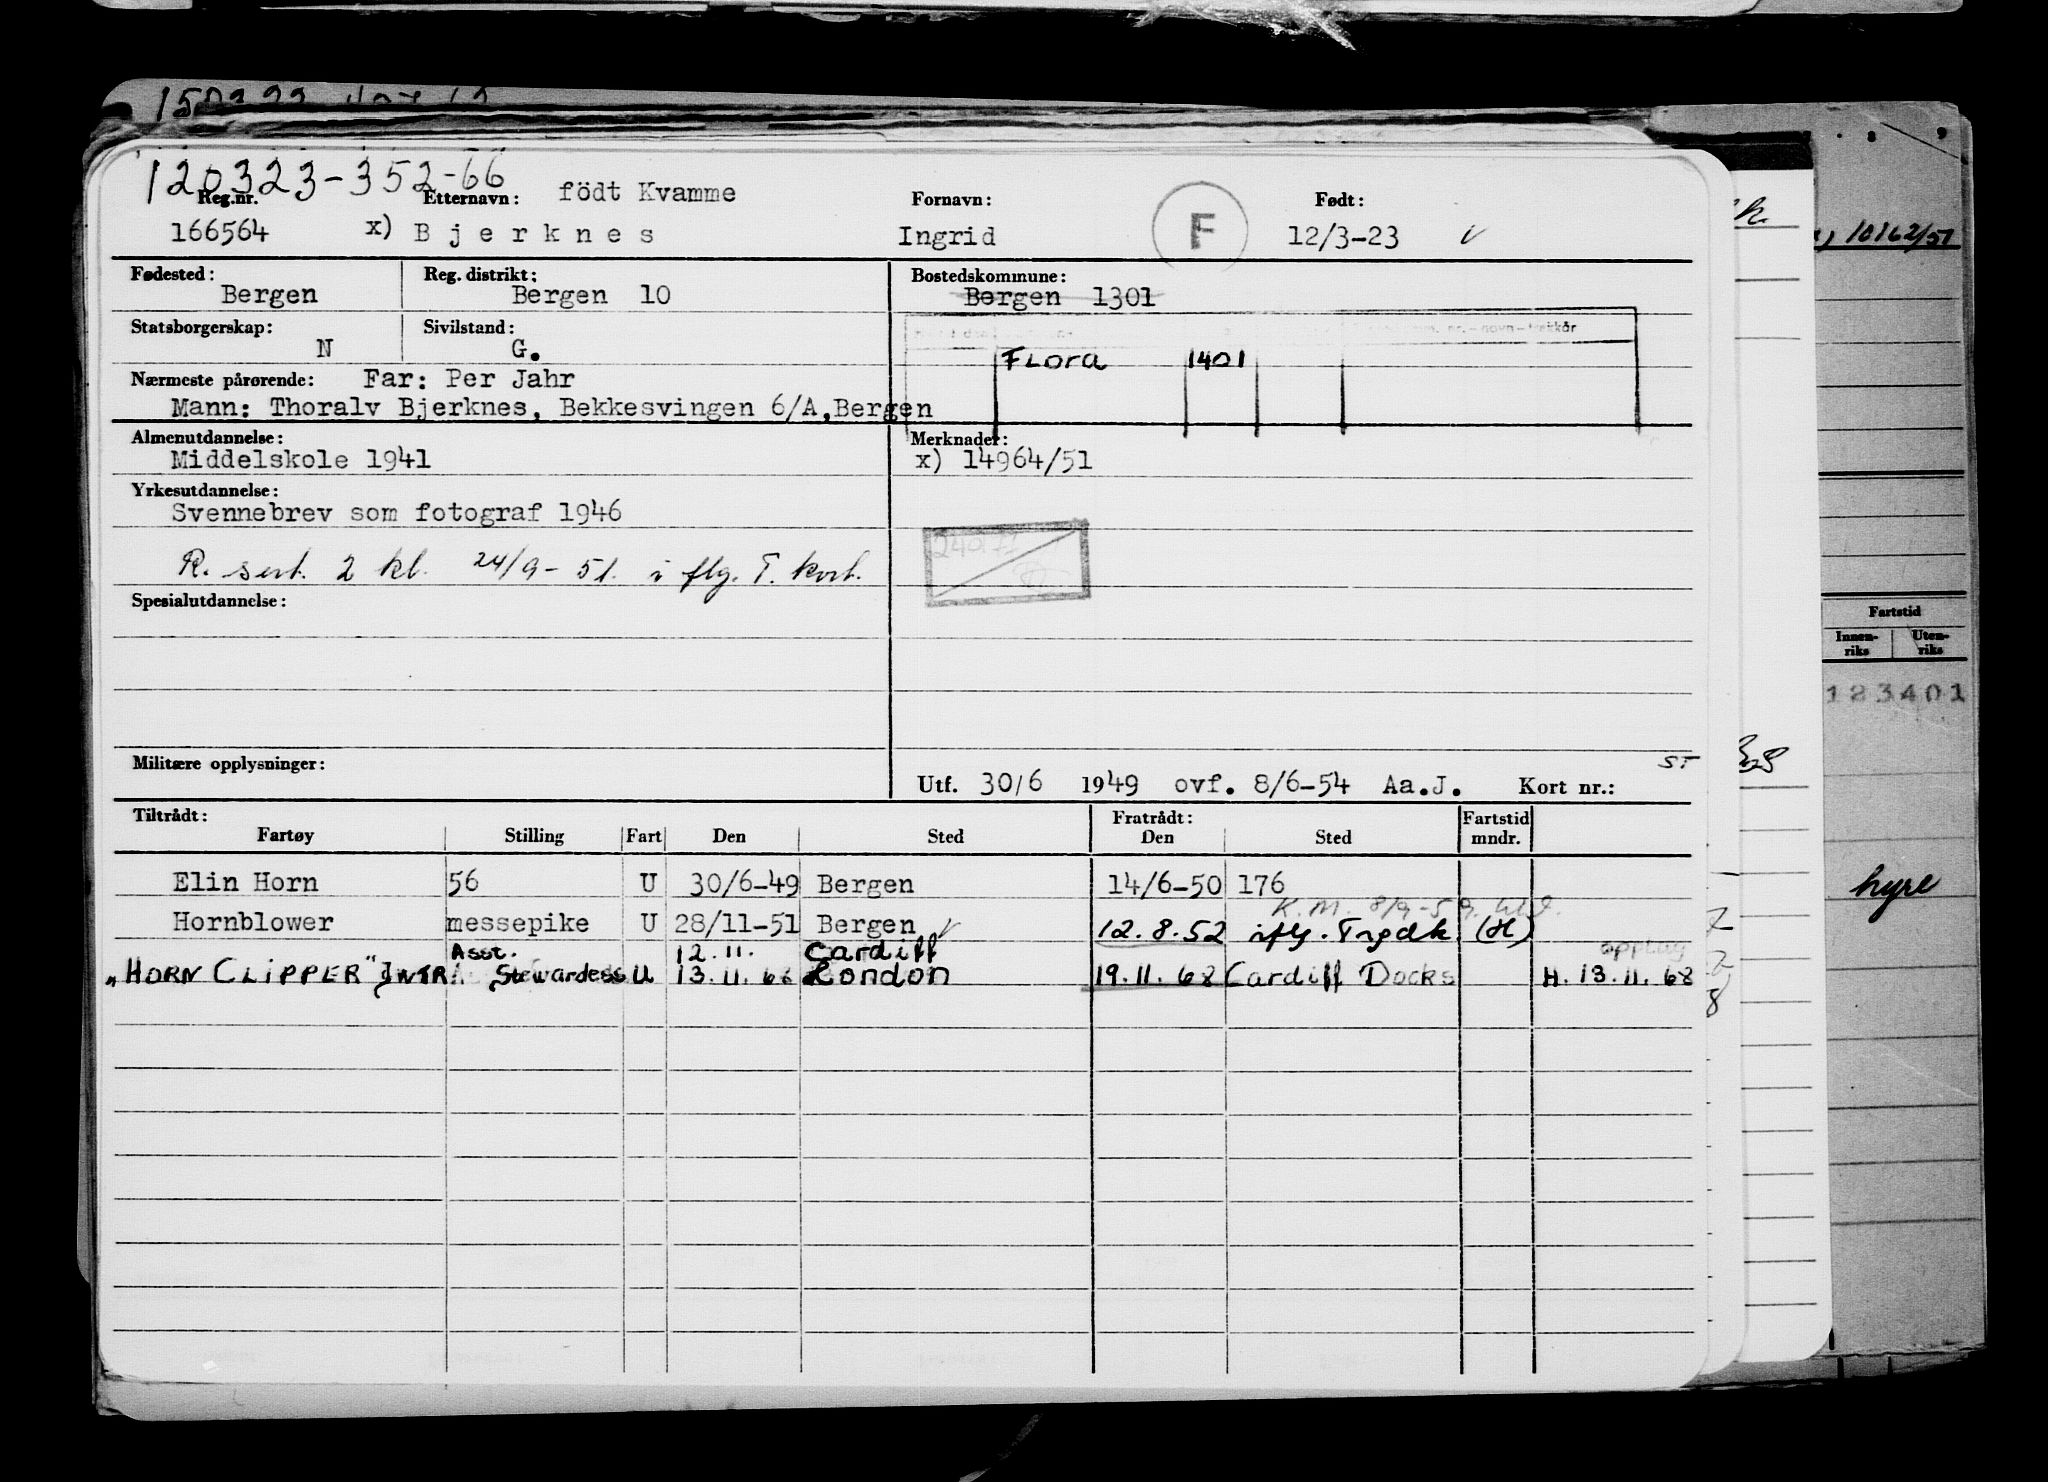 120323-352-66
Reg.nr. Etternavn: födt Kvamme Fornavn: Født:
166564 x) Bjerknes Ingrid F 12/3-23
Fødested: Reg. distrikt: Bostedskommune:
Bergen Bergen 10 Bergen 1301
Statsborgerskap: Sivilstand:
N G. FLORA 1401
Nærmeste pårørende: Far: Per Jahr
Mann: Thoralv Bjerknes, Bekkesvingen 6/A, Bergen
Almenutdannelse: Merknader:
Middelskole 1941 x) 14964/51
Yrkesutdannelse:
Svennebrev som fotograf 1946
R. sert. 2 kl. 24/9-51. iflg. T. kort.
Spesialutdannelse:
Militære opplysninger:
ST
Utf. 30/6 1949 ovf. 8/6-54 Aa.J. Kort nr.:
Tiltrådt: Fratrådt: Fartstid
Fartøy Stilling Fart Den Sted Den Sted mndr.
Elin Horn 56 U 30/6-49 Bergen 14/6-50 176
K.M. 8/9-59
Hornblower messepike U 28/11-51 Bergen 12.8.52 iflg. Trgdk. (H)
Asst. 12.11. Cardiff opptug
"HORN CLIPPER" INTR. Stewardess U 13.11.68 London 19.11.68 Cardiff Docks H. 13.11.68
10162/51
Fartstid
Innen-riks Uten-riks
123401
hyre